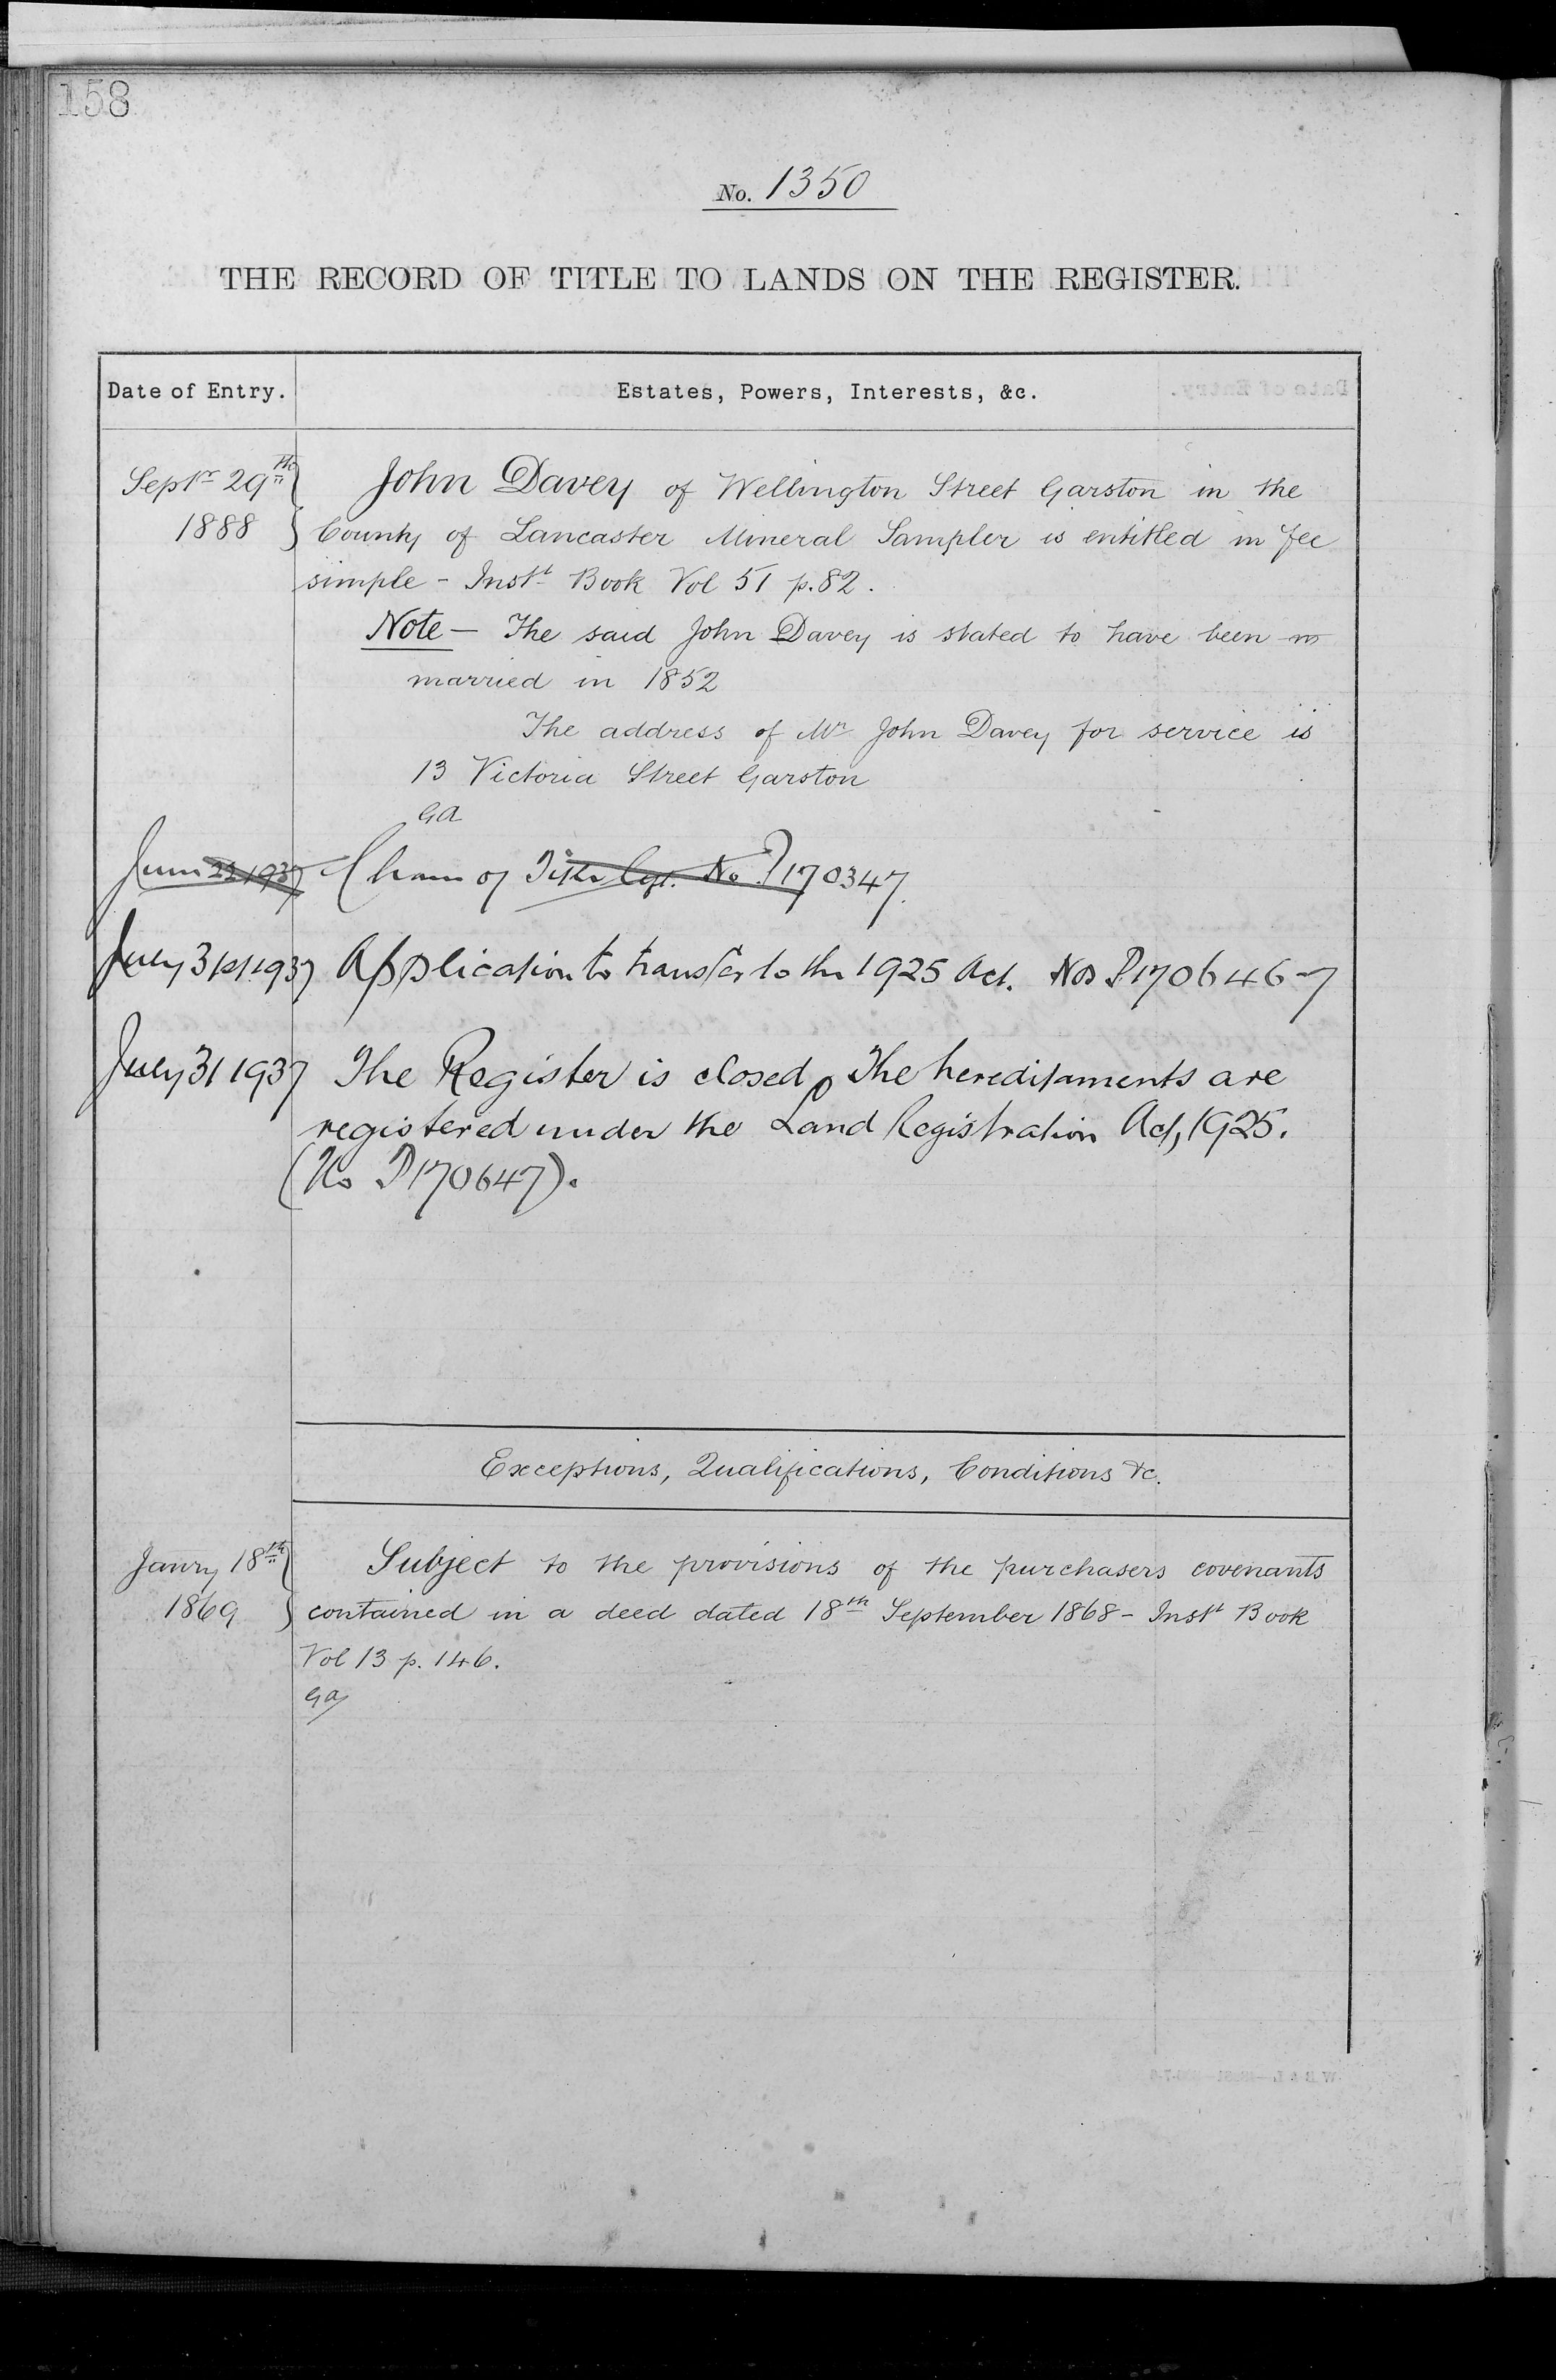 158
No. 1350
THE RECORD OF TITLE TO LANDS ON THE REGISTER.
Date of Entry. Estates, Powers, Interests, &c.
Septr 29th John Davey of Wellington Street Garston in the
1888 County of Lancaster Mineral Sampler is entitled in fee
simple - Instt Book Vol 51 p. 82.
Note - The said John Davey is stated to have been m
married in 1852
The address of Mr John Davey for service is
13 Victoria Street Garston
GA
June 22 1937 of Title No P170347.
July 31st 1937 Application to transfer to the 1925 Act. Nos P.170646-7
July 31 1937 The Register is closed. The hereditaments are
registered under the Land Registration Act, 1925.
(No P170647).
Exceptions, Qualifications, Conditions &c.
Janry 18th Subject to the provisions of the purchasers covenants
1869 contained in a deed dated 18th September 1868 - Instt Book
Vol 13 p. 146.
GA